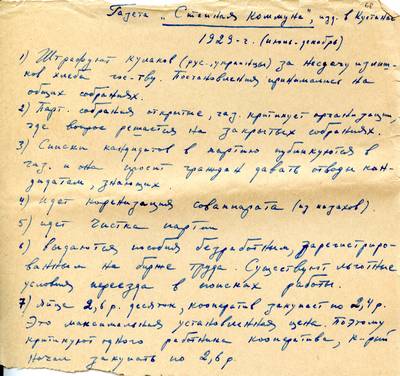 Газета „Степная Коммуна", изд. в Кустанае
1929 г. (июнь-декабрь)
1) Штрафуют кулаков (рус., украинцы) за несдачу излиш-
ков хлеба гос-тву. Постановления принимались на
общих собраниях.
2) Парт. собрания открытые, газ. критикует организации,
где вопрос решается на закрытых собраниях.
3) Списки кандидатов в партию публикуются в
газ. и она просит граждан давать отводы кан-
дидатам, знающих.
4) Идет коренизация соваппарата (из казахов).
5) идет чистка партии
6) Выдаются пособия безработным, зарегистриро-
ванным на бирже труда. Существуют льготные
условия переезда в поисках работы.
7) Яйца 2,6 р. десяток, кооператив закупает по 2,4 р.
Это максимальная установленная цена. Поэтому
критикуют одного работника кооператива, к-рый
начал закупать по 2,6 р.